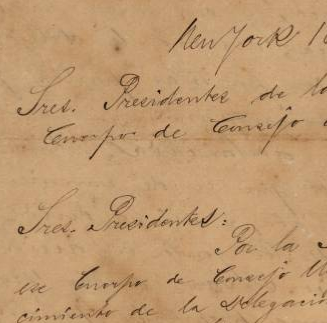 New York 1
Sres. Presidentes de l
Cuerpo de Consejo
Sres. Presidentes:
Por la
ese Cuerpo de Consejo
cimiento de la Delegació